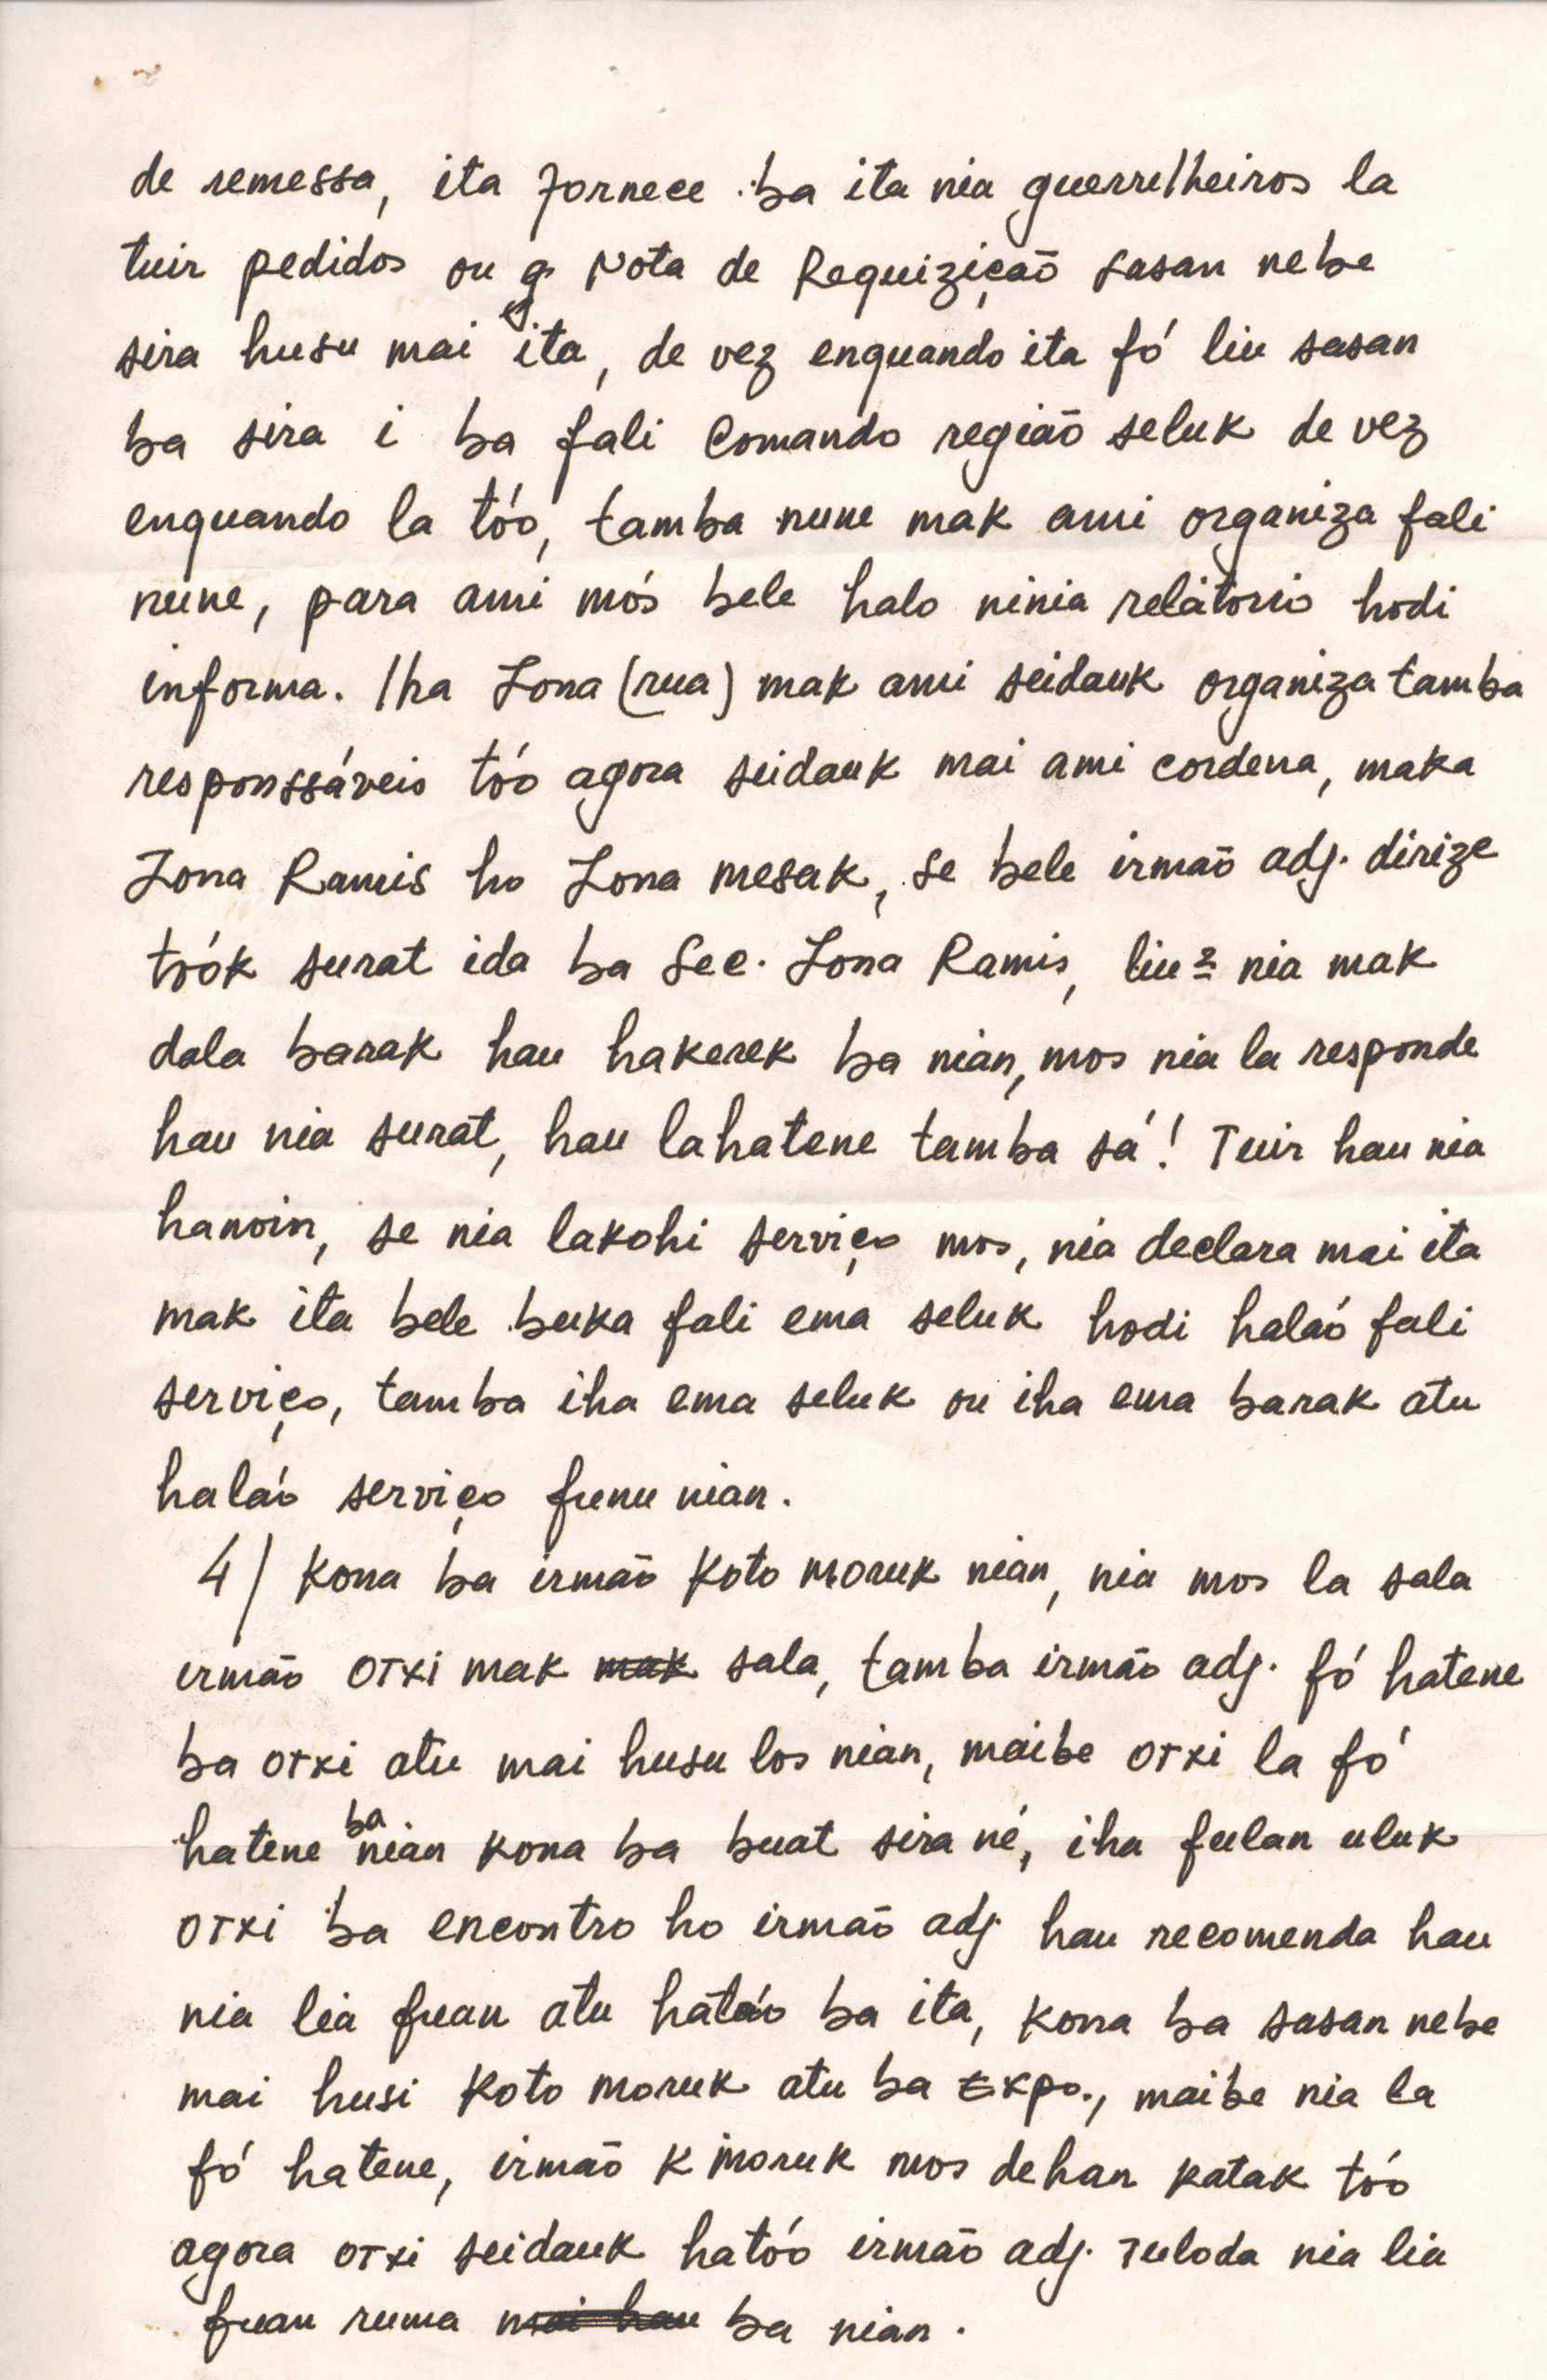 de remessa, ita fornece ba ita nia guerrilheiros la
tuir pedidos ou g Nota de Requizição sasan nebe
sira husu mai ita, de vez enquando ita fó liu sasan
ba sira i ba fali Comando região seluk de vez
enquando la tóo, tamba nune mak ami organiza fali
nune, para ami mós bele halo ninia relátorio hodi
informa. Iha Zona (rua) mak ami seidauk organiza tamba
responssáveis tóo agora seidauk mai ami cordena, maka
Zona Ramis ho Zona mesak, se bele irmão adj. dirize
toók surat ida ba Sec. Zona Ramis, liu2 nia mak
dala barak hau hakerek ba nian, mos nia la responde
hau nia surat, hau lahatene tamba sá! Tuir hau nia
hanoin, se nia lakohi serviço mos, nia declara mai ita
mak ita bele buka fali ema seluk hodi haláo fali
serviço, tamba iha ema seluk ou iha ema barak atu
haláo serviço funu nian.
4/ Kona ba irmão Koto moruk nian, nia mos la sala
irmão OTXI mak mak sala, tamba irmão adj. fó hatene
ba OTXI atu mai husu los nian, maibe OTXI la fó
hatene ba nian kona ba buat sira né, iha fulan uluk
OTXI ba encontro ho irmão adj hau recomenda hau
nia lia fuan atu hatóo ba ita, kona ba sasan nebe
mai husi Koto moruk atu ba Expo., maibe nia la
fó hatene, irmão K moruk mos dehan katak tóo
agora OTXI seidauk hatóo irmão adj. Tuloda nia lia
fuan ruma mai hau ba nian.